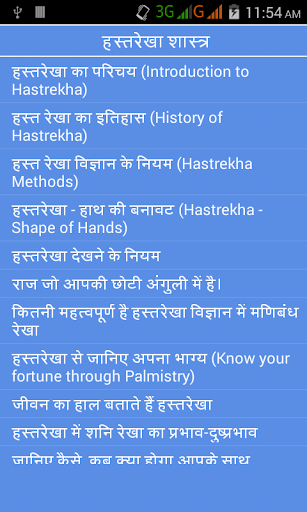 3G G 11:54 AM
हस्तरेखा शास्त्र
हस्तरेखा का परिचय (Introduction to
Hastrekha)
हस्त रेखा का इतिहास (History of
Hastrekha)
हस्त रेखा विज्ञान के नियम (Hastrekha
Methods)
हस्तरेखा - हाथ की बनावट (Hastrekha -
Shape of Hands)
हस्तरेखा देखने के नियम
राज जो आपकी छोटी अंगुली में है।
कितनी महत्वपूर्ण है हस्तरेखा विज्ञान में मणिबंध
रेखा
हस्तरेखा से जानिए अपना भाग्य (Know your
fortune through Palmistry)
जीवन का हाल बताते हैं हस्तरेखा
हस्तरेखा में शनि रेखा का प्रभाव-दुष्प्रभाव
जानिए कैसे, कब क्या होगा आपके साथ